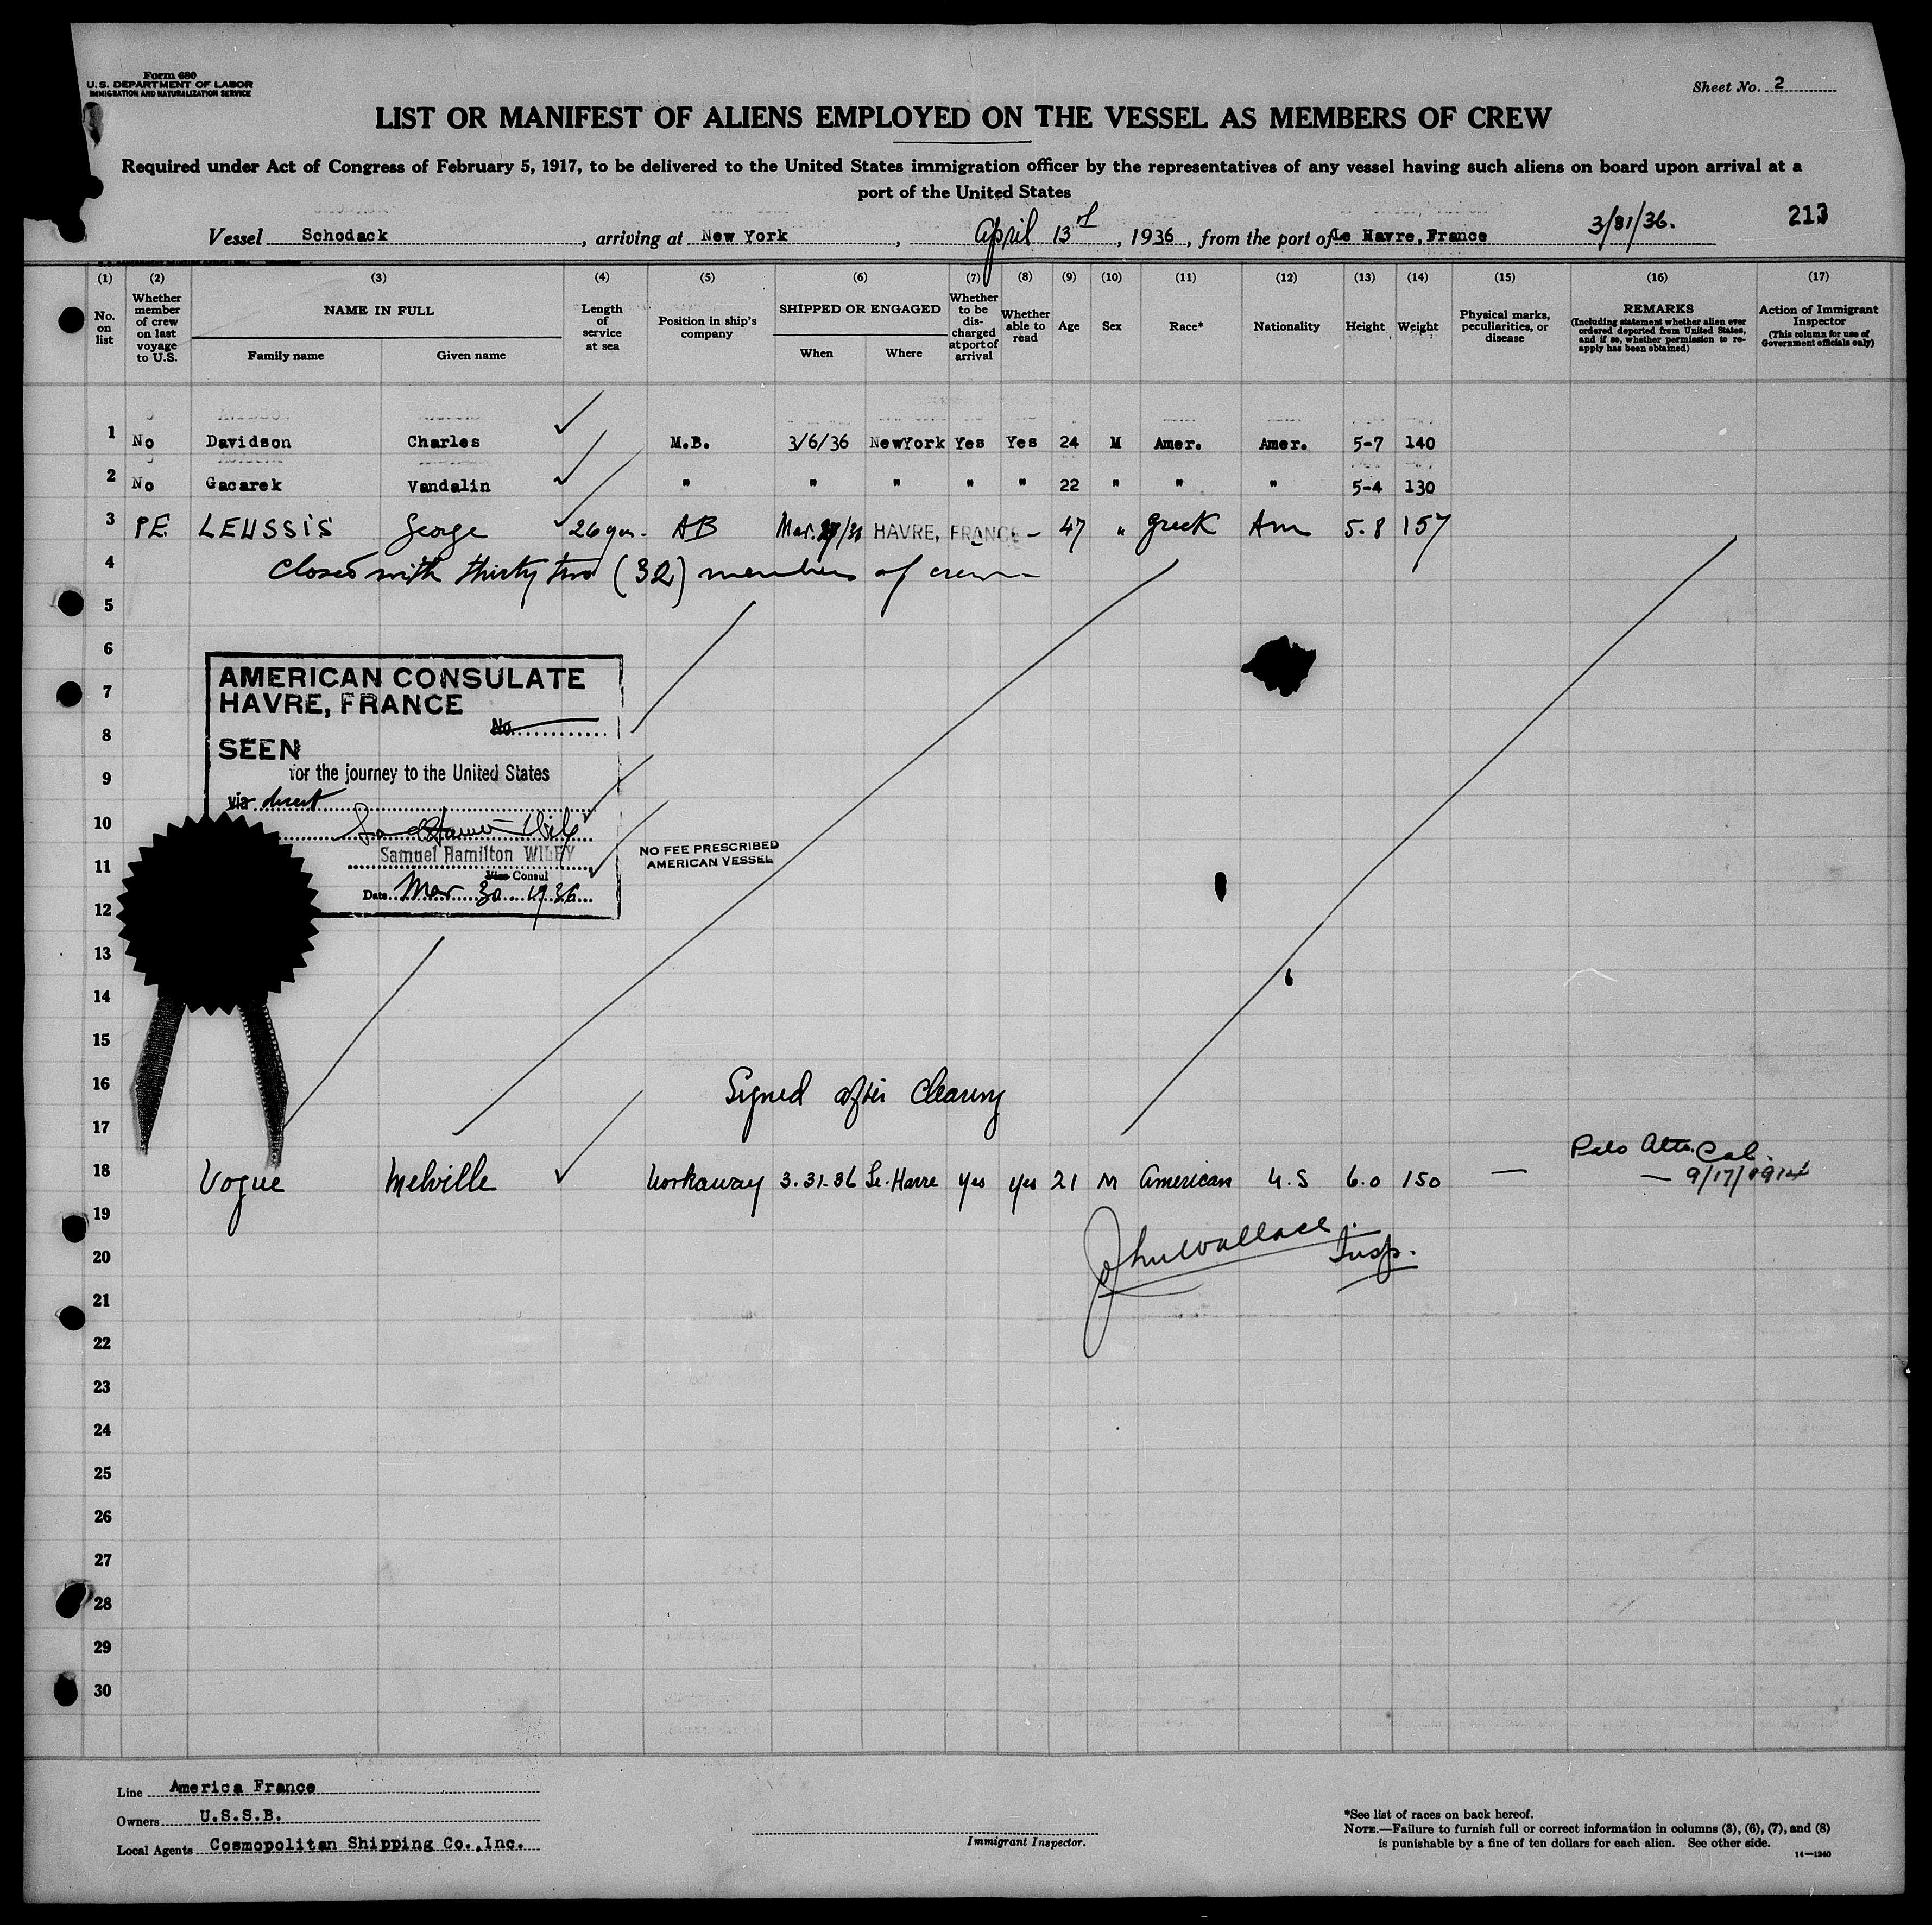 Form 680
U.S. DEPARTMENT OF LABOR
IMMIGRATION AND NATURALIZATION SERVICE
Sheet No. 2
LIST OR MANIFEST OF ALIENS EMPLOYED ON THE VESSEL AS MEMBERS OF CREW
Required under Act of Congress of February 5, 1917, to be delivered to the United States immigration officer by the representatives of any vessel having such aliens on board upon arrival at a
port of the United States
Vessel Schodack, arriving at New York, April 13, 1936, from the port of Le Havre, France 3/31/36. 213
(1) (2) (3) (4) (5) (6) (7) (8) (9) (10) (11) (12) (13) (14) (15) (16) (17)
No. on list
Whether member of crew on last voyage to U.S.
NAME IN FULL
Family name Given name
Length of service at sea
Position in ship's company
SHIPPED OR ENGAGED
When Where
Whether to be discharged at port of arrival
Whether able to read
Age
Sex
Race*
Nationality
Height
Weight
Physical marks, peculiarities, or disease
REMARKS
(Including statement whether alien ever ordered deported from United States, and if so, whether permission to re-apply has been obtained)
Action of Immigrant Inspector
(This column for use of Government officials only)
1 No Davidson Charles M.B. 3/6/36 NewYork Yes Yes 24 M Amer. Amer. 5-7 140
2 No Gacarek Vandalin " " " " " 22 " " " 5-4 130
3 PE. LEUSSIS George 26 yrs. AB Mar. /36 HAVRE, FRANCE - 47 " Greek Am 5.8 157
4 Closed with thirty two (32) members of crew
5
6
AMERICAN CONSULATE
7
HAVRE, FRANCE
No.
8
SEEN
for the journey to the United States
9
via direct
10
Samuel Hamilton WILEY
NO FEE PRESCRIBED
AMERICAN VESSEL
11
Vice Consul
Date Mar 30 1936
12
13
14
15
16 Signed after Clearing
17
18 Vogue Melville Workaway 3.31.36 Le. Havre yes yes 21 M American U.S 6.0 150 — Palo Alto. Cal.
— 9/17/1914
19
John Wallace Insp.
20
21
22
23
24
25
26
27
28
29
30
Line America France
Owners U.S.S.B.
Local Agents Cosmopolitan Shipping Co., Inc.
Immigrant Inspector.
*See list of races on back hereof.
NOTE.—Failure to furnish full or correct information in columns (3), (6), (7), and (8)
is punishable by a fine of ten dollars for each alien. See other side.
14—1240